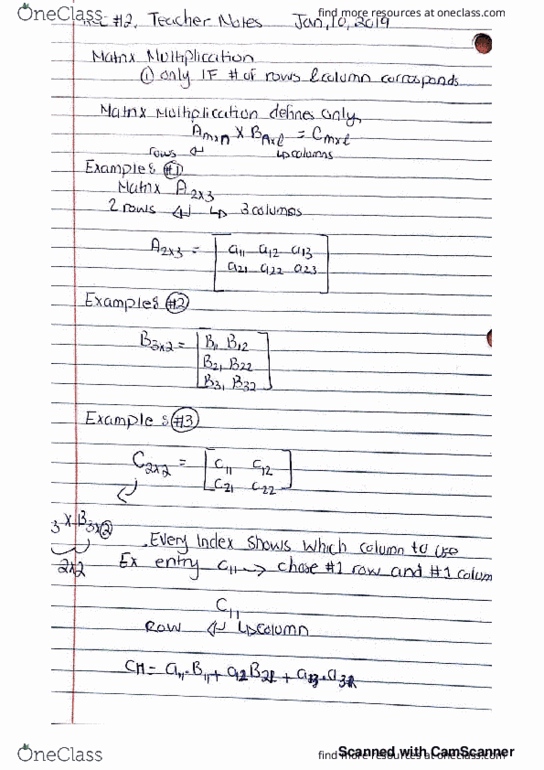 OneClass
find more resources at oneclass.com
#2. Teacher Notes Jan, 10, 2019
Matrix Multiplication
① only IF # of rows & column corresponds
Matrix Multiplication defines only,
Amxn X Bnxl = Cmxl
rows columns
Examples #1
Matrix A2x3
2 rows 3 columns
A2x3 = a11 a12 a13
a21 a22 a23
Examples #2
B3x2 = B11 B12
B21 B22
B31 B32
Examples #3
C2x2 = c11 c12
c21 c22
3 x B3x2
2x2
.Every index shows which column to use
Ex entry c11 → chose #1 row and #1 colum
C11
Row column
C11 = a11·B11 + a12B21 +
OneClass
find more resources at oneclass.com
Scanned with CamScanner